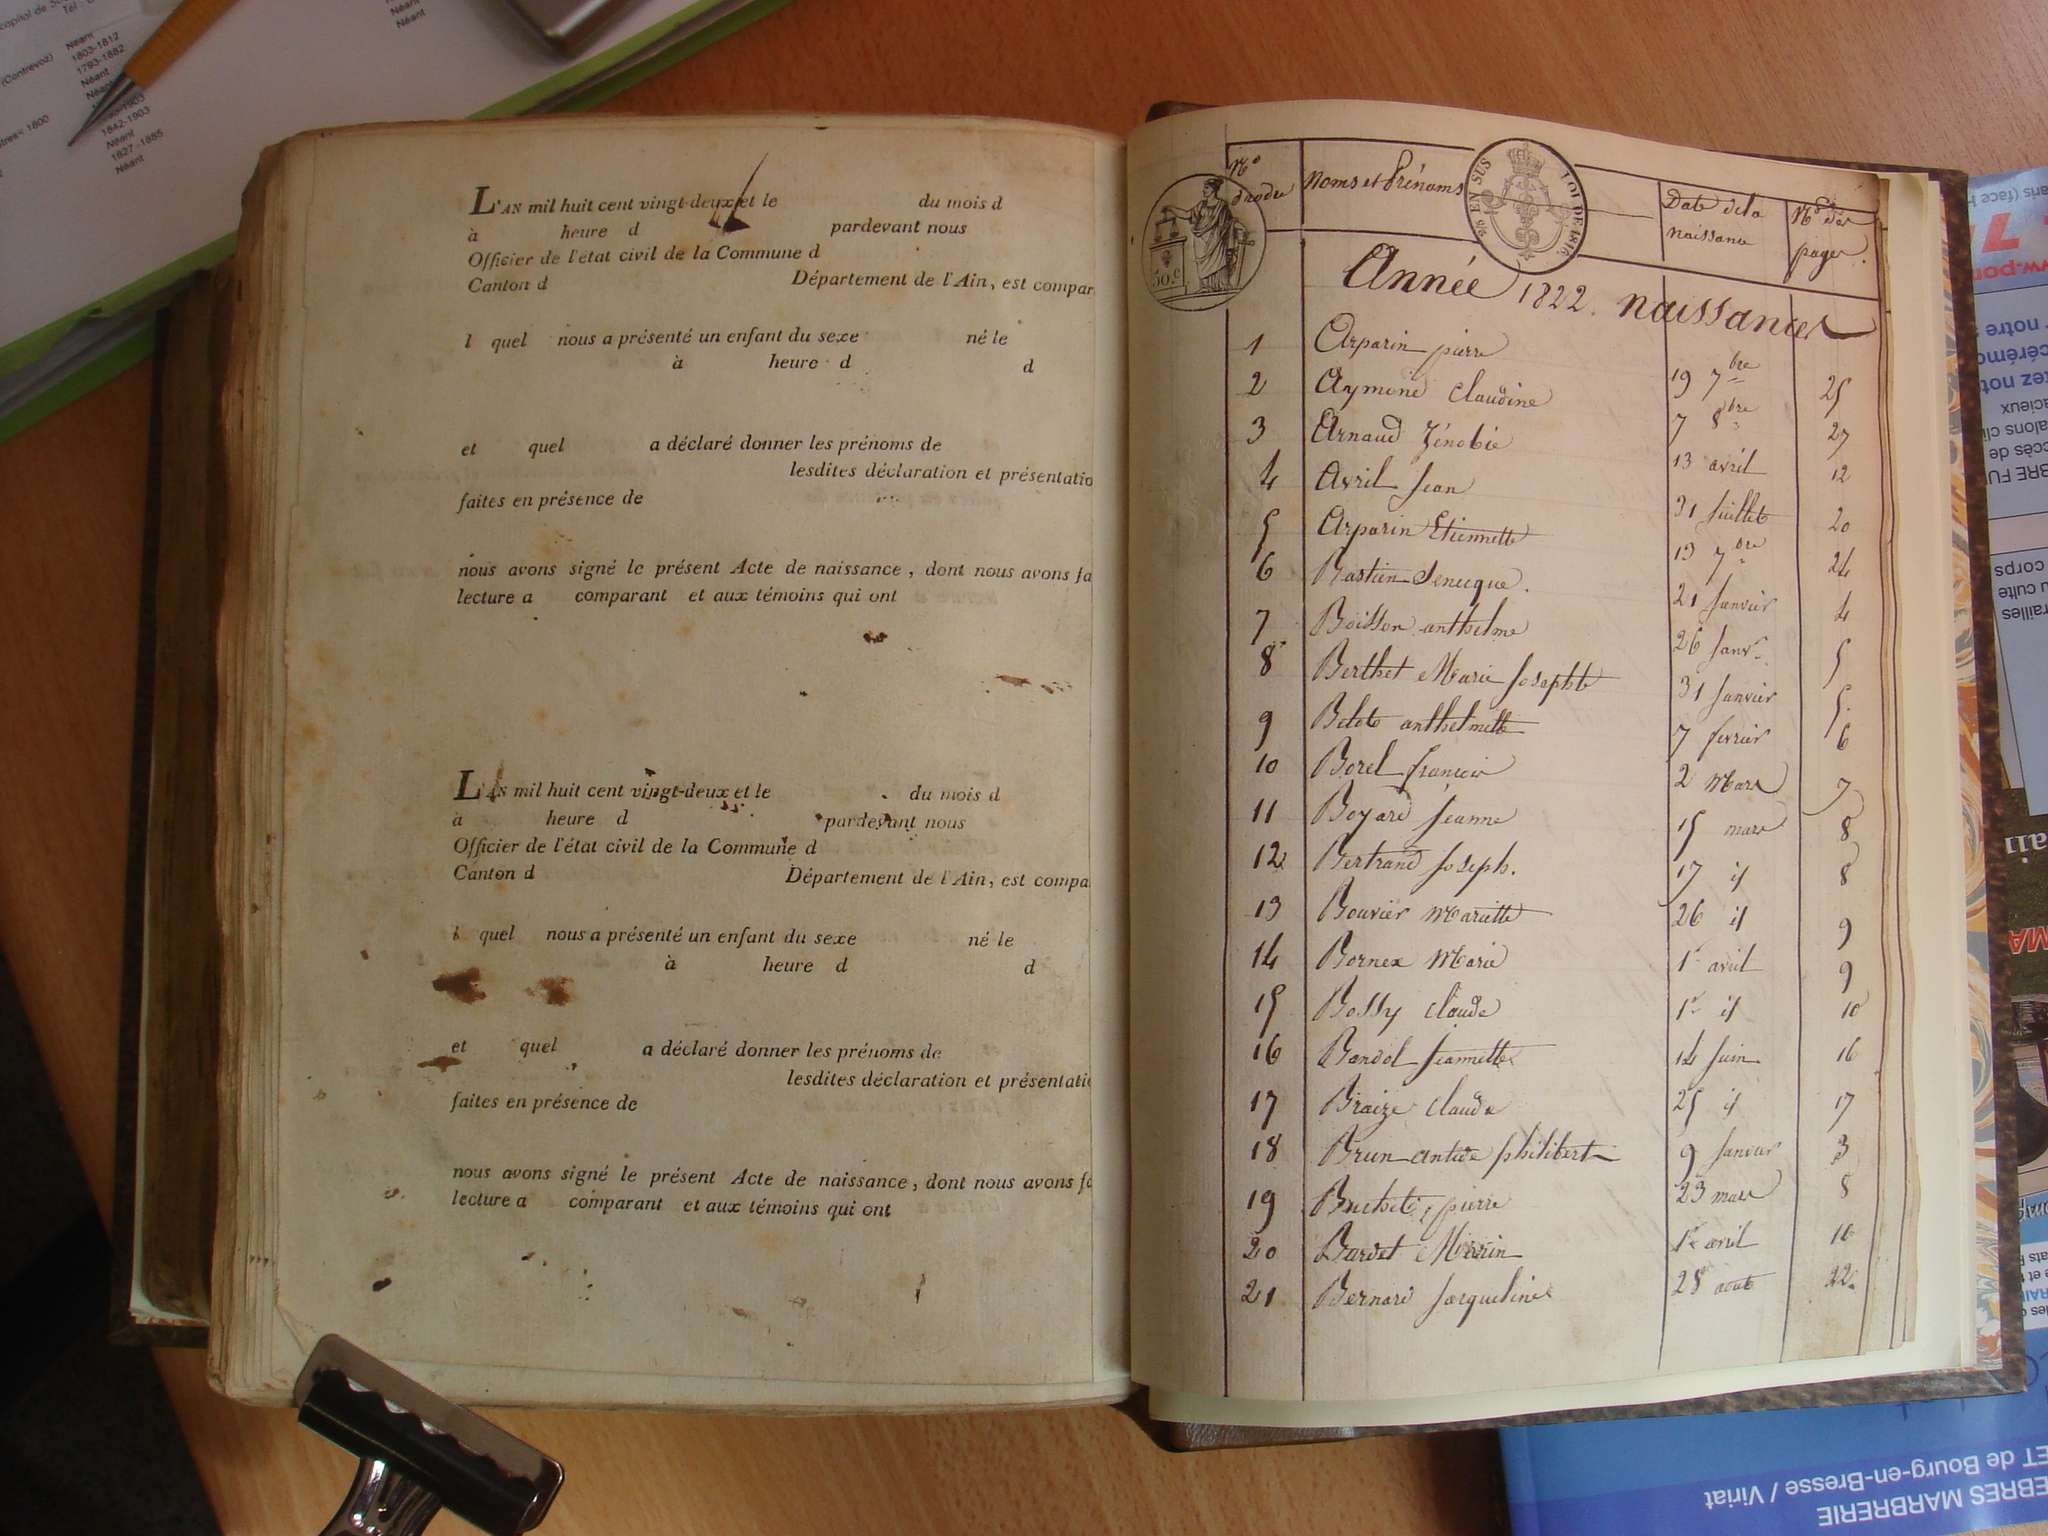 copital de
Tél :
Néant
Néant
Néant
(Contrevoz)
1803-1812
1793-1882
Néant
1842-1903
Néant
1827-1885
Néant
1800
L'AN mil huit cent vingt-deux et le du mois d
à heure d pardevant nous
Officier de l'état civil de la Commune d
Canton d Département de l'Ain, est compar
l quel nous a présenté un enfant du sexe né le
à heure d d
et quel a déclaré donner les prénoms de
lesdites déclaration et présentatio
faites en présence de
nous avons signé le présent Acte de naissance, dont nous avons fa
lecture a comparant et aux témoins qui ont
L'AN mil huit cent vingt-deux et le du mois d
à heure d pardevant nous
Officier de l'état civil de la Commune d
Canton d Département de l'Ain, est compa
l quel nous a présenté un enfant du sexe né le
à heure d d
et quel a déclaré donner les prénoms de
lesdites déclaration et présentatio
faites en présence de
nous avons signé le présent Acte de naissance, dont nous avons fa
lecture a comparant et aux témoins qui ont
50.c
EN SUS LOI DE 1816
No d'ordre Noms et Prénoms Date de la naissance Nos des pages.
Année 1822. naissances
1 Arparin pierre 19 7bre 25
2 Aymond Claudine 7 8bre 27
3 Arnaud Zénobie 13 avril 12
4 Avril Jean 31 Juillet 20
5 Arparin Etiennette 13 7bre 24
6 Bastien Senecque. 21 Janvier 4
7 Boisson anthelme 26 Janv. 5
8 Berthet Marie Josephte 31 Janvier 5.
9 Belet anthelmette 7 fevrier 6
10 Borel francois 2 Mars 7
11 Boyard Jeanne 15 mars 8
12 Bertrand Joseph. 17 id 8
13 Bouvier Mariette 26 id 9
14 Bornex Marie 1er avril 9
15 Bossy Claude 1er id 10
16 Bandol Jeannette 14 Juin 16
17 Braize Claude 25 id 17
18 Brun antide philibert 9 Janvier 3
19 Buchet, pierre 23 mars 8
20 Bardet Marin 1er avril 10
21 Bernard Jacqueline 28 aout 22
aris (face
7
ww.pom
notre
cérémo
tez not
acieux
alons cli
ccès de
BRE FU
corps
u culte
railles
MA
EBRES MARBRERIE
ET de Bourg-en-Bresse / Viriat